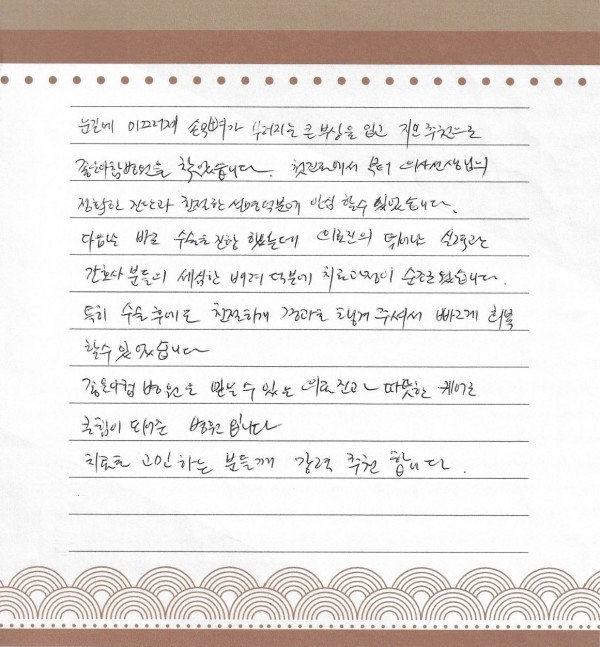 눈길에 미끄러져 손목뼈가 부러지는 큰 부상을 입고 지인 추천으로
좋은아침병원을 찾았습니다. 첫진료에서 부터 의사선생님의
정확한 진단과 친절한 설명덕분에 안심 할수 있었습니다.
다음날 바로 수술을 진행 했는데 의료진의 뛰어난 실력과
간호사 분들의 세심한 배려 덕분에 치료과정이 순조로웠습니다.
특히 수술 후에도 친절하게 경과를 챙겨 주셔서 빠르게 회복
할수 있었습니다
병원은 믿을 수 있는 의료진과 따뜻한 케어로
큰힘이 돼준 병원 입니다
치료로 고민 하는 분들께 강력 추천 합니다.